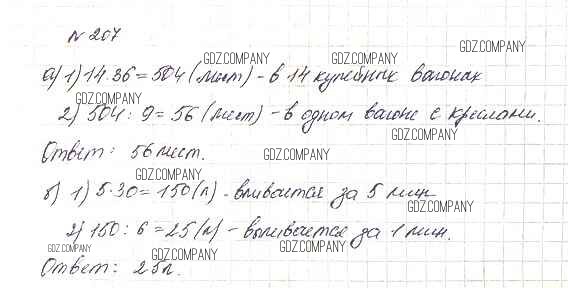 № 207
а) 1) 14·36=504 (мест) - в 14 купейных вагонах
2) 504 : 9 = 56 (мест) - в одном вагоне с креслами.
Ответ: 56 мест.
б) 1) 5·30=150 (л) - вливается за 5 мин
2) 150 : 6 = 25 (л) - выливается за 1 мин.
Ответ: 25л.
GDZ.COMPANY
GDZ.COMPANY
GDZ.COMPANY
GDZ.COMPANY
GDZ.COMPANY
GDZ.COMPANY
GDZ.COMPANY
GDZ.COMPANY
GDZ.COMPANY
GDZ.COMPANY
GDZ.COMPANY